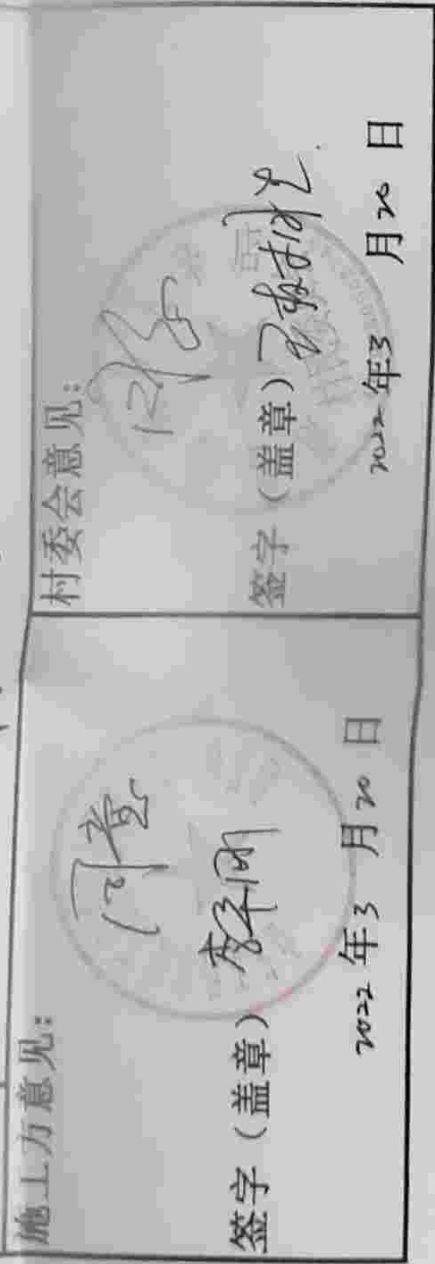 施工方意见:
同意
签字（盖章）
2022年3月20日
村委会意见:
同意
签字（盖章）
2022年3月20日